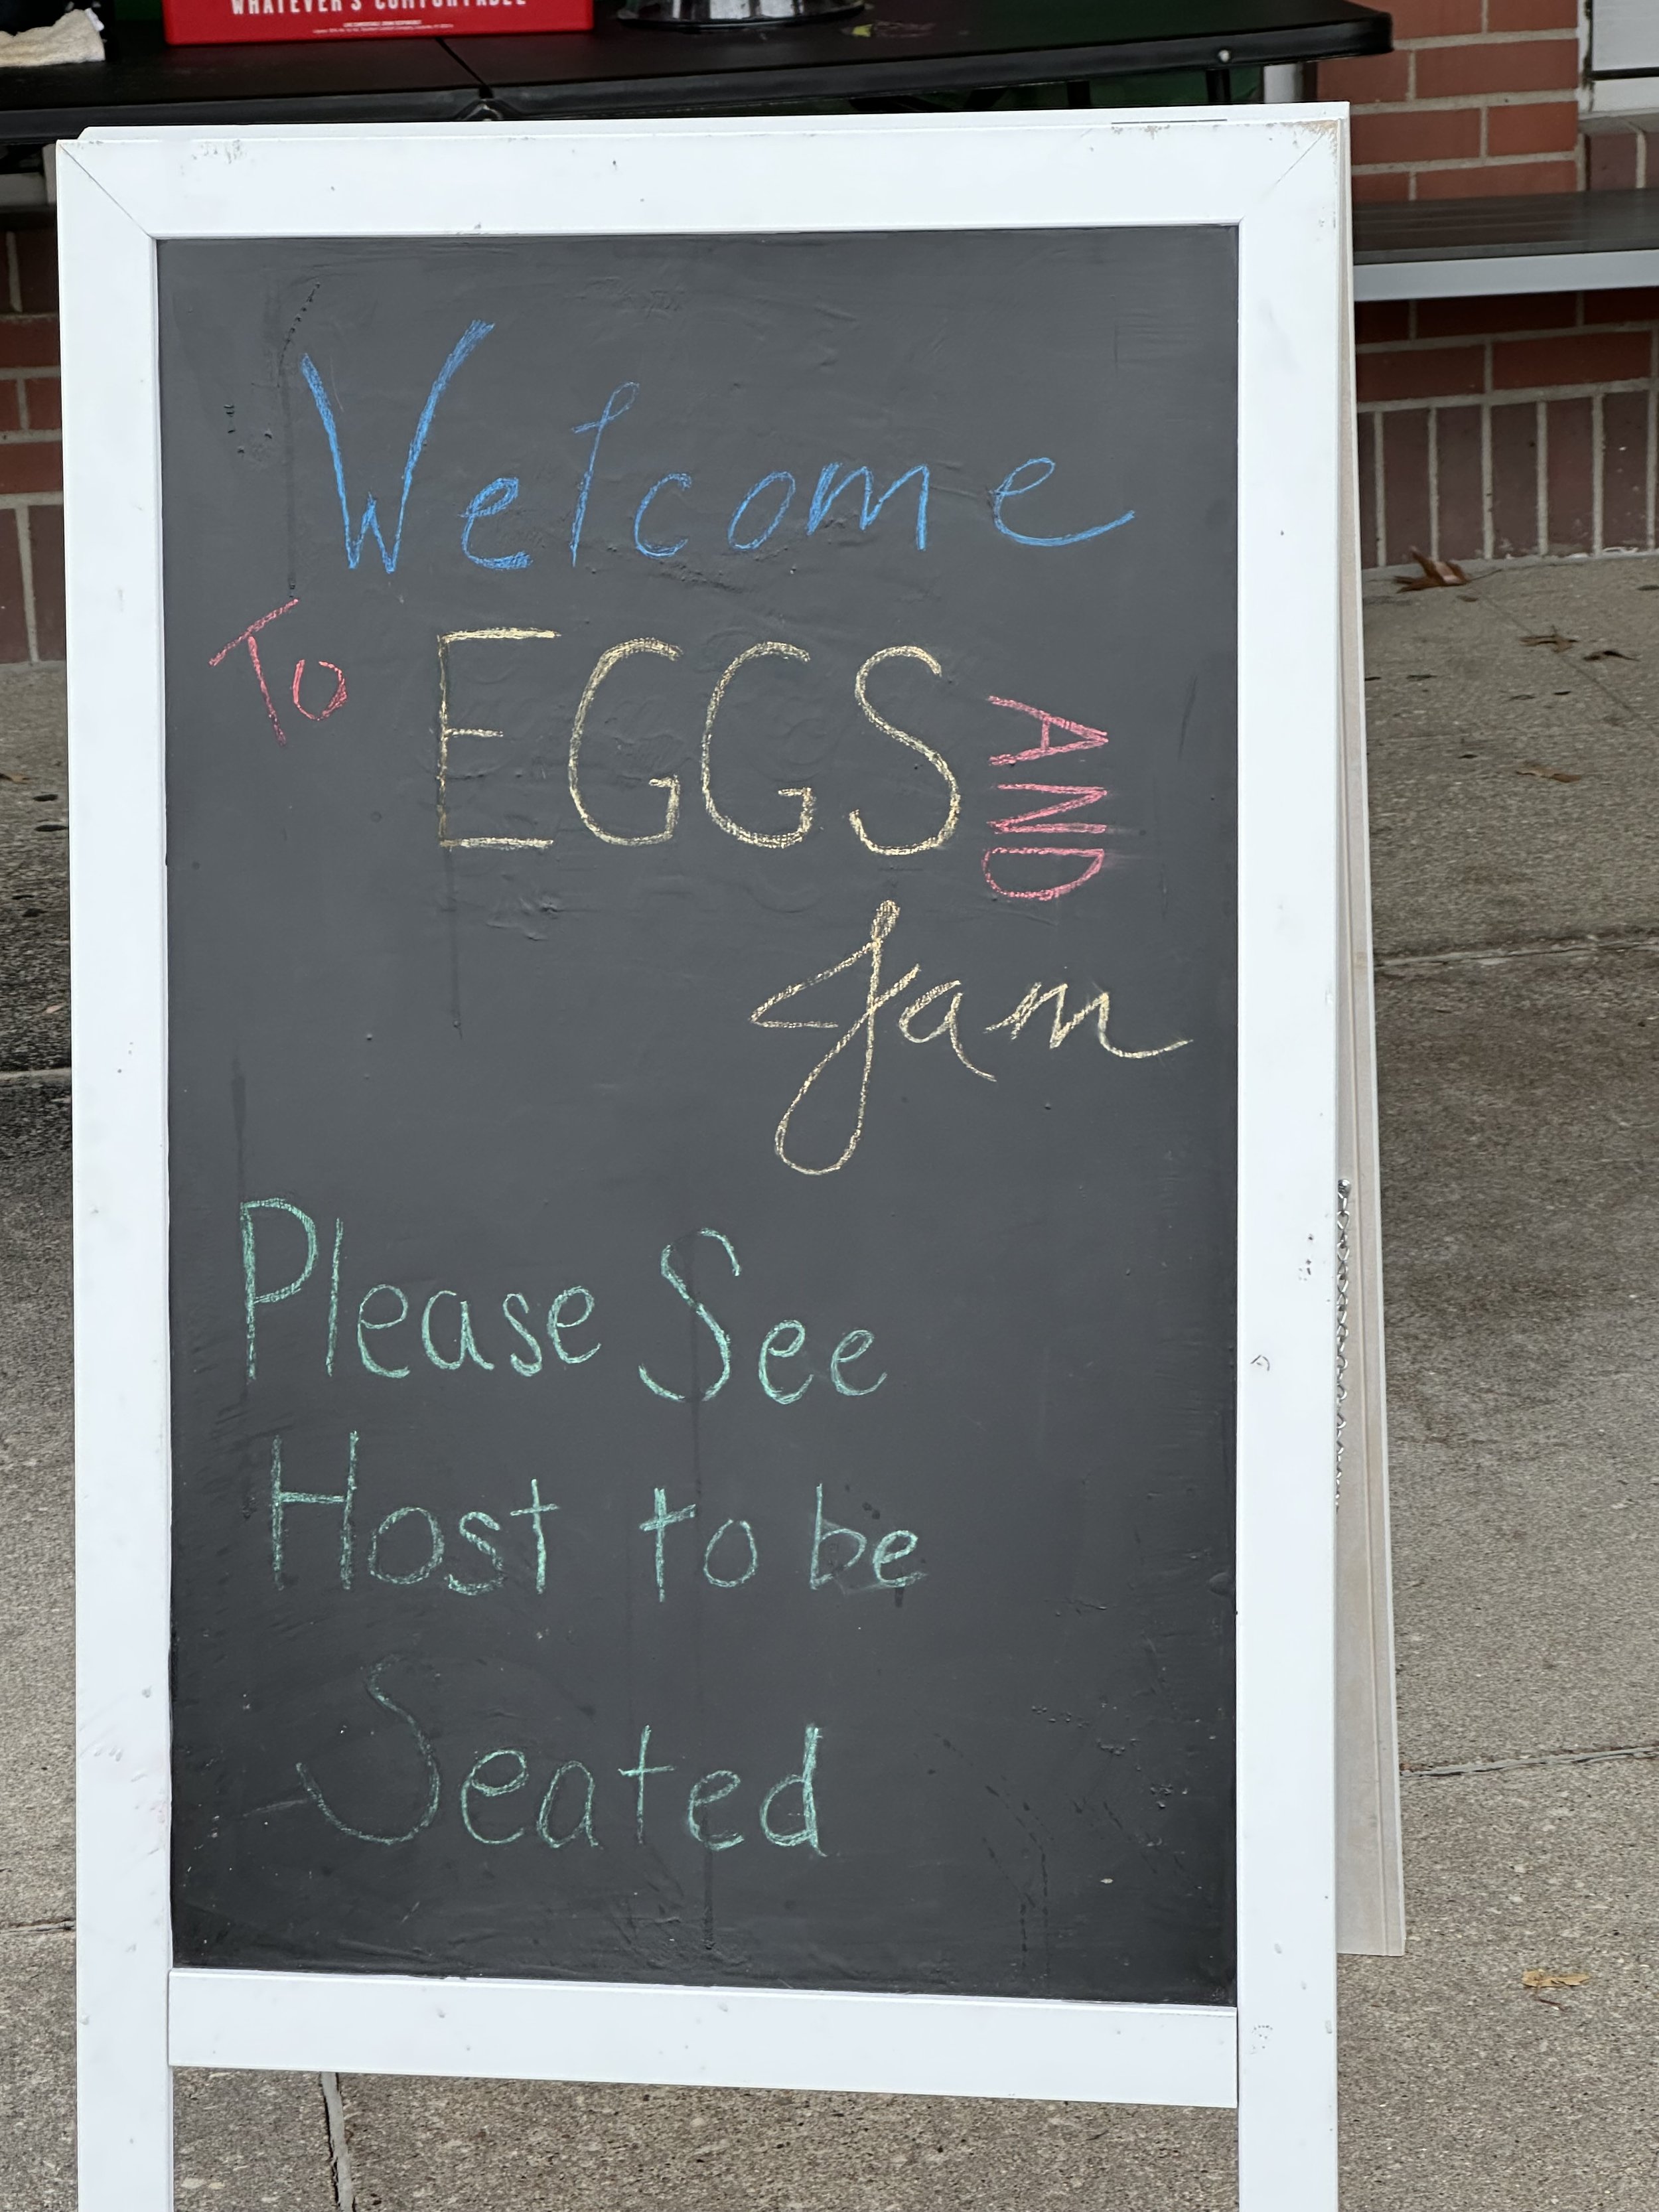 WHATEVER'S COMFORTABLE
Welcome
To EGGS AND
Jam
Please See
Host to be
Seated